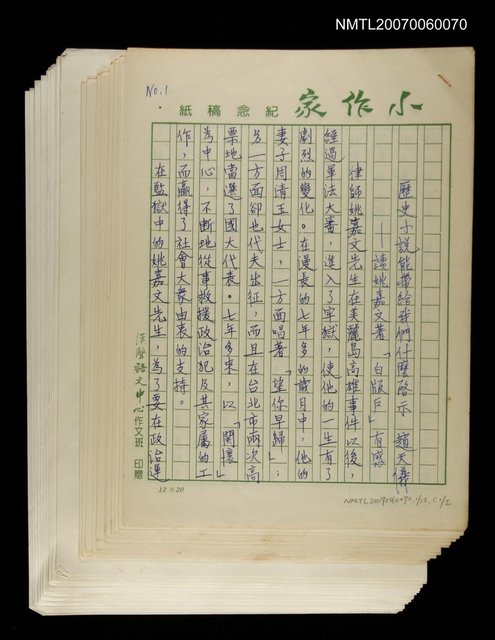 NMTL20070060070
No.1
小作家紀念稿紙
歷史小說能帶給我們什麼啓示 趙天儀
——讀姚嘉文著「白版戶」有感
律師姚嘉文先生在美麗島高雄事件以後，
經過軍法大審，進入了牢獄，使他的一生有了
劇烈的變化。在漫長的七年多的歲月中，他的
妻子周清玉女士，一方面唱著「望你早歸」；
另一方面卻也代夫出征，而且在台北市兩次高
票地當選了國大代表。七年多來，以「關懷」
為中心，不斷地從事救援政治犯及其家屬的工
作，而贏得了社會大衆由衷的支持。
在監獄中的姚嘉文先生，為了要在政治運
語文中心作文班 印贈
12×20
NMTL20070060070